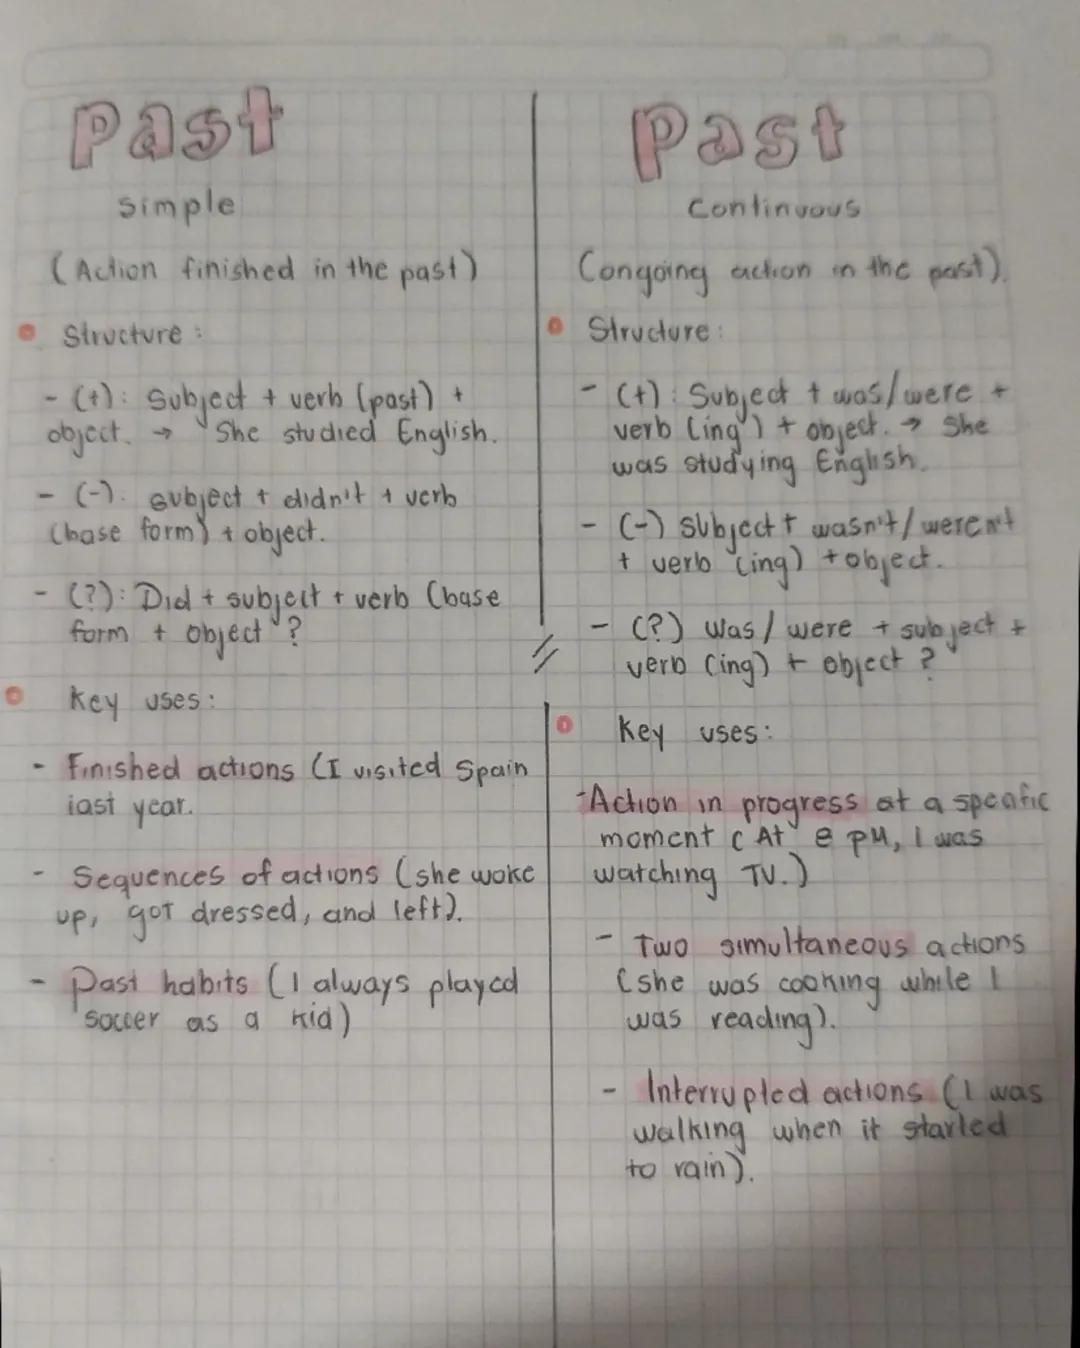 Past
simple
(Action finished in the past)
Structure:
- (+): Subject + verb (past) +
object. → She studied English.
- (-). subject + didn't + verb
(base form) + object.
- (?): Did + subject + verb (base
form + object ?
Key uses:
- Finished actions (I visited Spain
last year.
- Sequences of actions (she woke
up, got dressed, and left).
- Past habits (I always played
soccer as a kid)
Past
Continuous
(ongoing action in the past).
Structure:
- (+): Subject + was/were +
verb (ing) + object. → She
was studying English.
- (-) subject + wasn't/weren't
+ verb (ing) + object.
- (?) Was/were + subject +
verb (ing) + object ?
Key uses:
- Action in progress at a specific
moment (At 8 PM, I was
watching TV.)
- Two simultaneous actions
(she was cooking while I
was reading).
- Interrupted actions (I was
walking when it started
to rain).